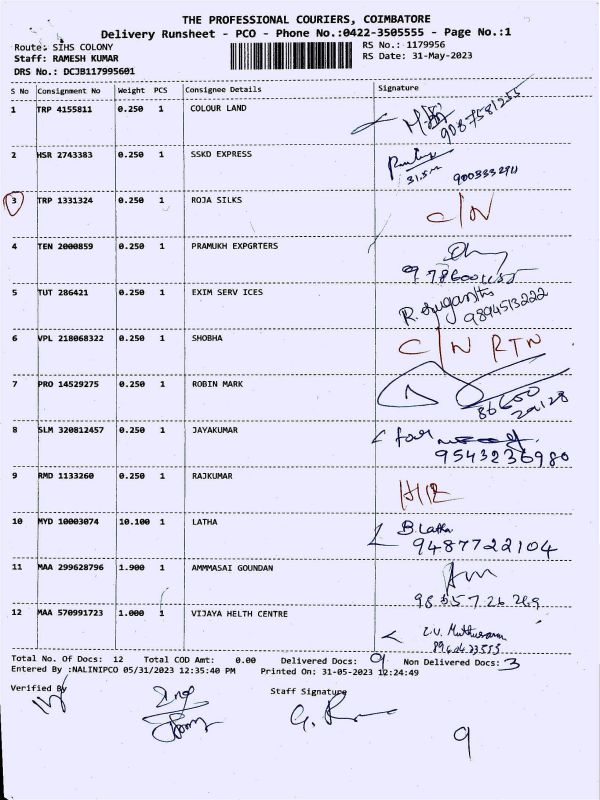 THE PROFESSIONAL COURIERS, COIMBATORE
Delivery Runsheet - PCO - Phone No.:0422-3505555 - Page No.:1
Route: SIHS COLONY RS No.: 1179956
Staff: RAMESH KUMAR RS Date: 31-May-2023
DRS No.: DCJB117995601
S No Consignment No Weight PCS Consignee Details Signature
1 TRP 4155811 0.250 1 COLOUR LAND
9087581255
2 HSR 2743383 0.250 1 SSKD EXPRESS
3 TRP 1331324 0.250 1 ROJA SILKS C/N
4 TEN 2000859 0.250 1 PRAMUKH EXPGRTERS
5 TUT 286421 0.250 1 EXIM SERV ICES
9894513222
6 VPL 218068322 0.250 1 SHOBHA C/N RTN
7 PRO 14529275 0.250 1 ROBIN MARK
8 SLM 320812457 0.250 1 JAYAKUMAR
9543236980
9 RMD 1133260 0.250 1 RAJKUMAR
10 MYD 10003074 10.100 1 LATHA B. Latha
9487722104
11 MAA 299628796 1.900 1 AMMMASAI GOUNDAN
12 MAA 570991723 1.000 1 VIJAYA HELTH CENTRE
Total No. Of Docs: 12 Total COD Amt: 0.00 Delivered Docs: 9 Non Delivered Docs: 3
Entered By :NALINIPCO 05/31/2023 12:35:40 PM Printed On: 31-05-2023 12:24:49
Verified By Staff Signature
9